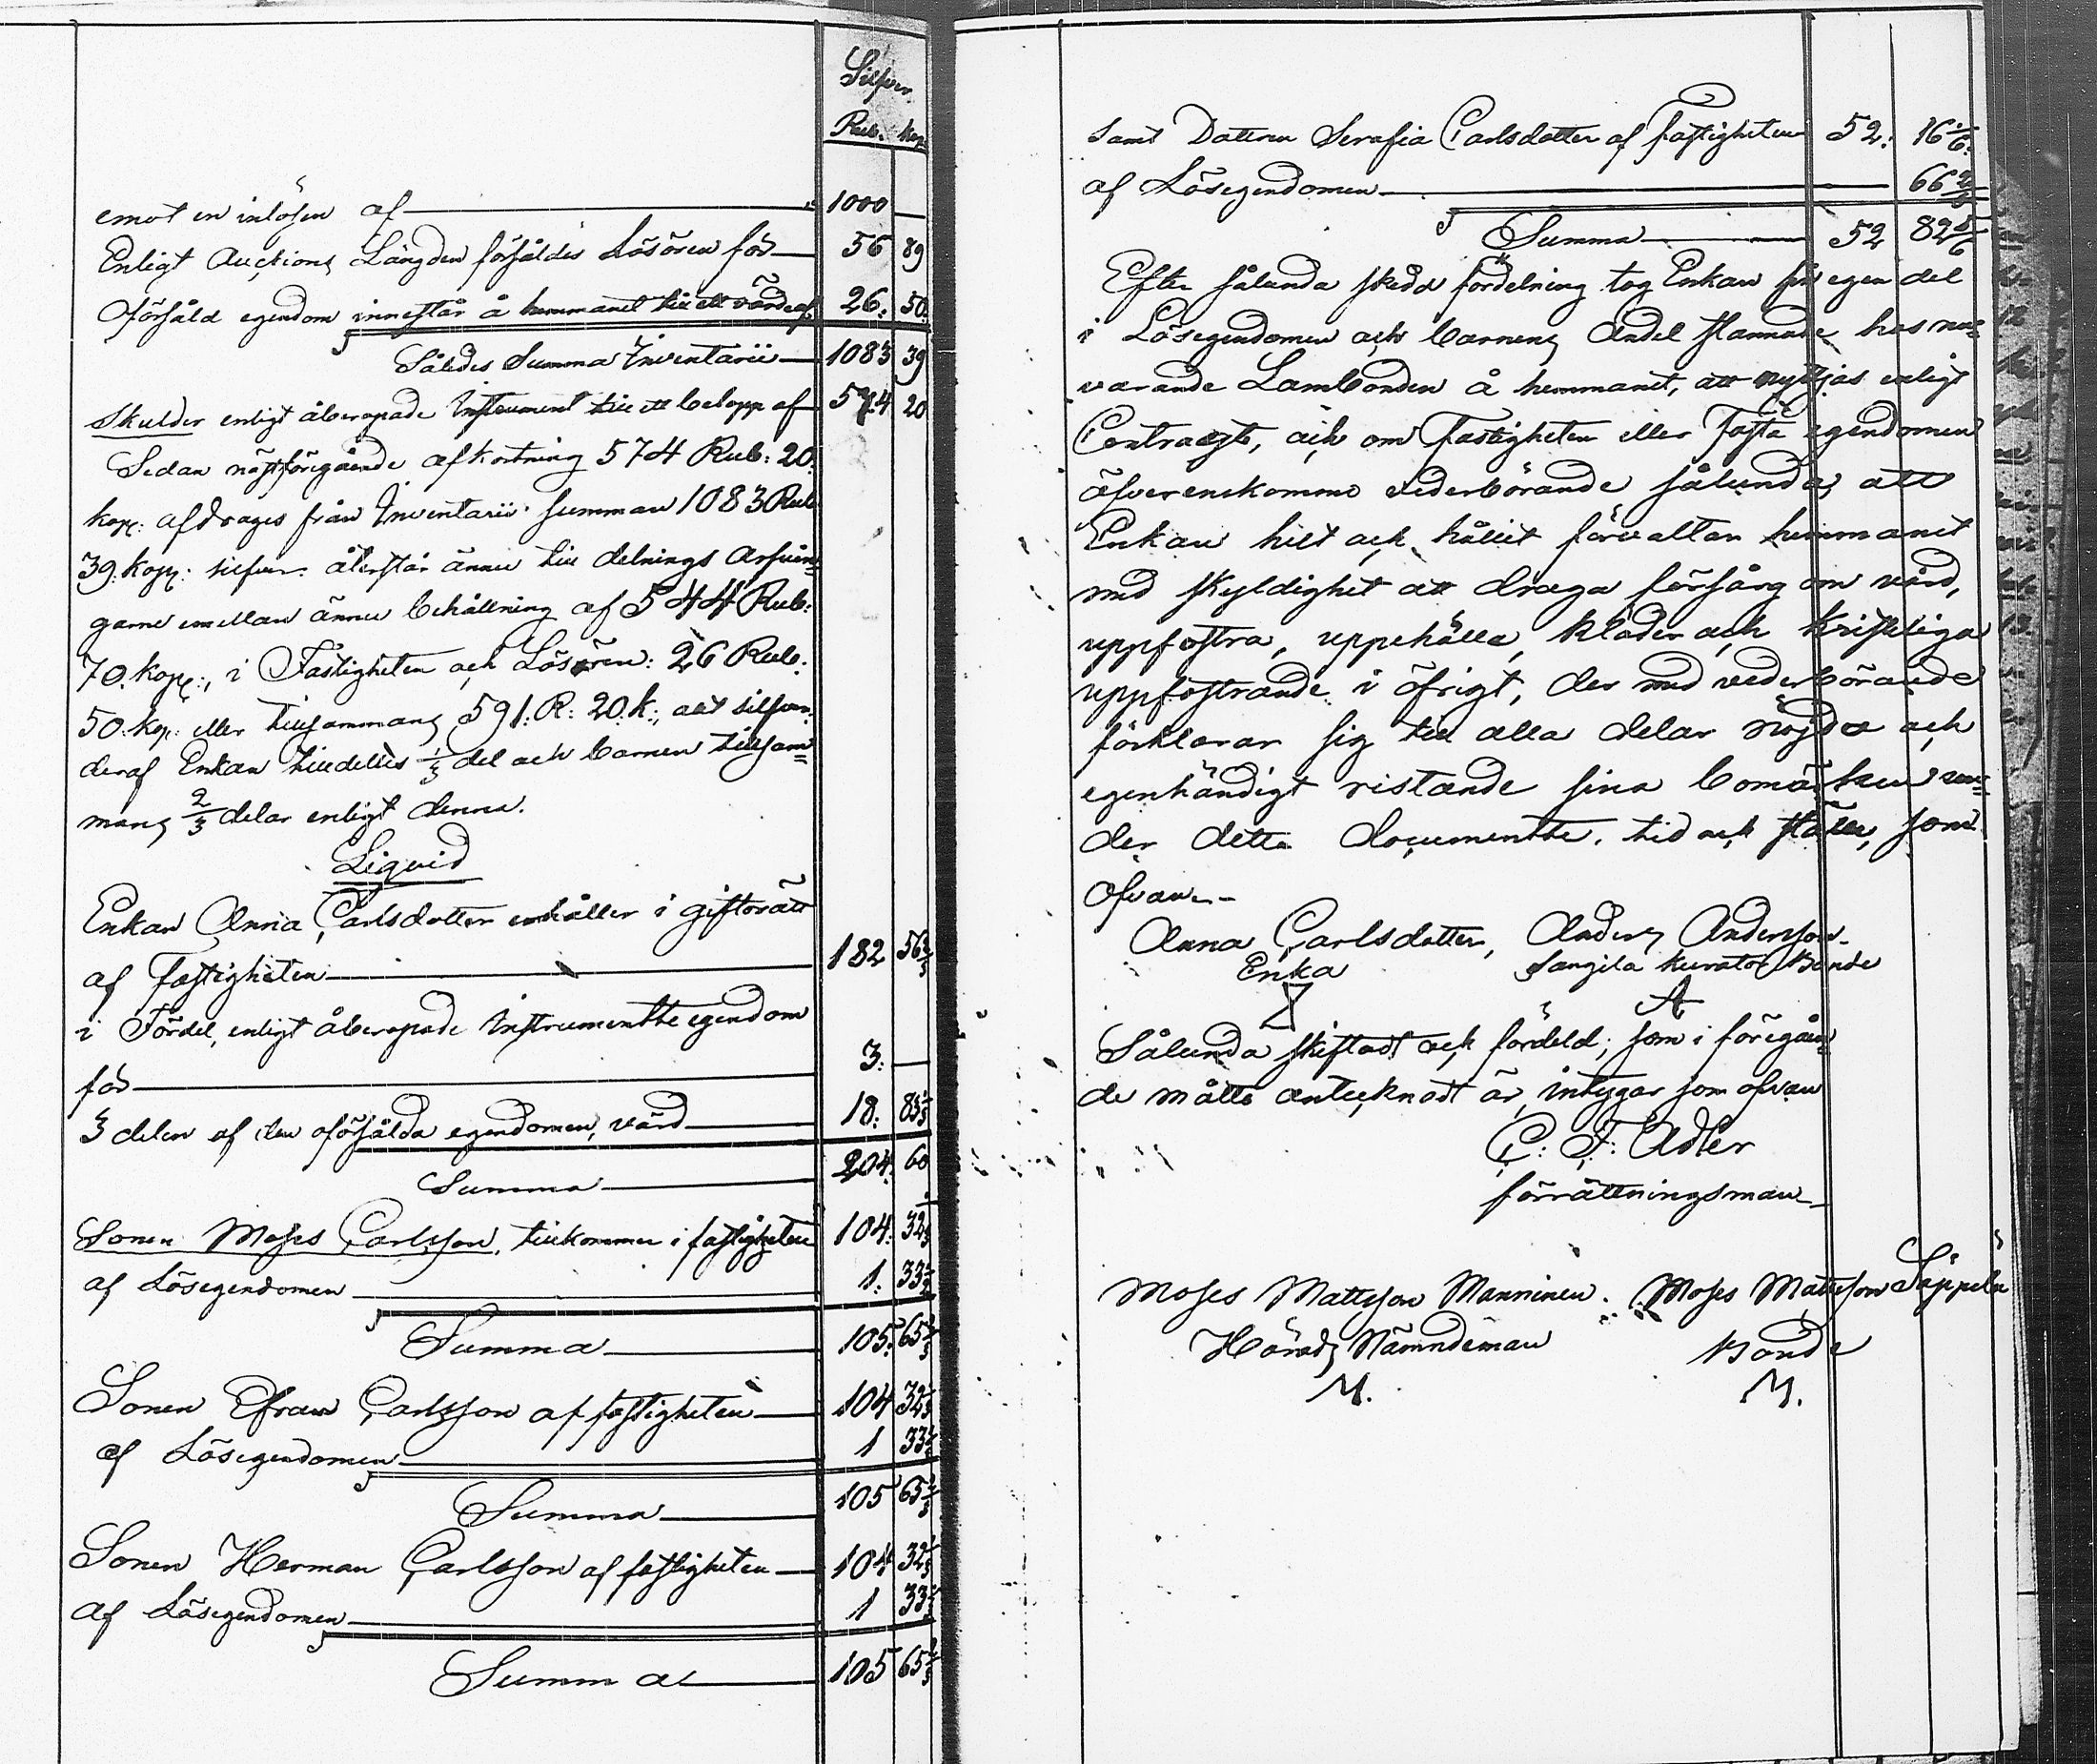 Silfver
Rub. Kop.
emot en inlösen af 1000 —
Enligt Auctions Längden försåldes Lösören för 56 89
Oförsåld egendom innestår å hemmanet till ett värde af 26. 50.
Således Summa Inventarii 1083 39
Skulder enligt åberopade Instrument till ett belopp af 574 20
Sedan nästföregående afkortning 574 Rub: 20.
kop: afdrages från Inventarii summan 1083 Rub
39. kop: silfver återstår ännu till delnings Arfvin=
garne emellan ännu behållning af 544 Rub:
70. kop:, i Fastigheten och Lösören: 26 Rub.
50. kop: eller tillsammans 591. R: 20. k:, allt silfver,
deraf Enkan tilldeles 1/3 del och barnen tillsam=
mans 2/3 delar enligt denna.
Liqvid
Enkan Anna Carlsdotter erhåller i giftorätt
af Fastigheten 182 56 2/3
i Fördel, enligt åberopade Instrumentte egendom
för 3. —
3 delen af den oförsålda egendomen, värd 18. 83 1/3
Summa 204. 60
Sonen Moses Carlsson, tillkommer i fastigheten 104. 32 1/3
af Lösegendomen 1. 33 1/3
Summa 105. 65 2/3
Sonen Efraim Carlsson af fastigheten 104 32 1/3
af Lösegendomen 1 33 1/3
Summa 105 65 2/3
Sonen Herman Carlsson af fastigheten 104 32 1/3
af Lösegendomen 1 33 1/3
Summa 105 65 2/3
samt Dottren Serafia Carlsdotter af fastigheten 52. 16 1/6.
af Lösegendomen 66 2/3
Summa 52 82 5/6
Efter sålunda skedd fördelning tog Enkan sin egen del
i Lösegendomen och barnens Andel stannade hos nu=
varande Lambonden å hemmanet, att nyttjas enligt
Contract, och om Fastigheten eller Fasta egendomen
öfverenskomme vederbörande sålunda, att
Enkan hilt och hållit förvaltar hemmanet
med skyldighet att draga försårg om vård,
uppfostra, uppehälle, kläder och kristeliga
uppfostrande i öfrigt, der med vederbörande
förklarar sig till alla delar nöjda och
egenhändigt ristande sina bomärken un=
der detta documentte, tid och ställe, som
ofvan.-
Anna Carlsdotter, Anders Andersson.
Enka Sangila kurator Bonde
A
Sålunda skiftadt och fördeld, som i föregåen=
de måtte antecknadt är, intygar som ofvan
C: F: Adler
förrättningsman
Moses Mattsson Manninen. Moses Mattsson Säppelä
Härads Nämndeman Bonde
M. M.